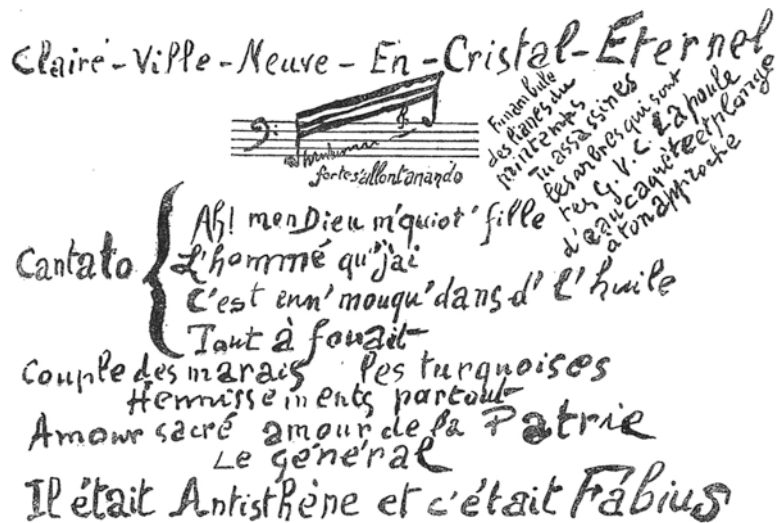 Claire-Ville-Neuve-En-Cristal-Eternel
Funambule
des lianes du
printemps
Tu assassines
les arbres qui sont
tes G. V. C. La poule
d'eau caquète et plonge
à ton approche
forte s'allontanando
Cantato
Ah! mon Dieu m'quiot' fille
L'hommé qu'j'ai
C'est enn' mouqu' dans d' l'huile
Tout à fouait
Couple des marais les turquoises
Hennissements partout
Amour sacré amour de la Patrie
Le général
Il était Antisthène et c'était Fabius